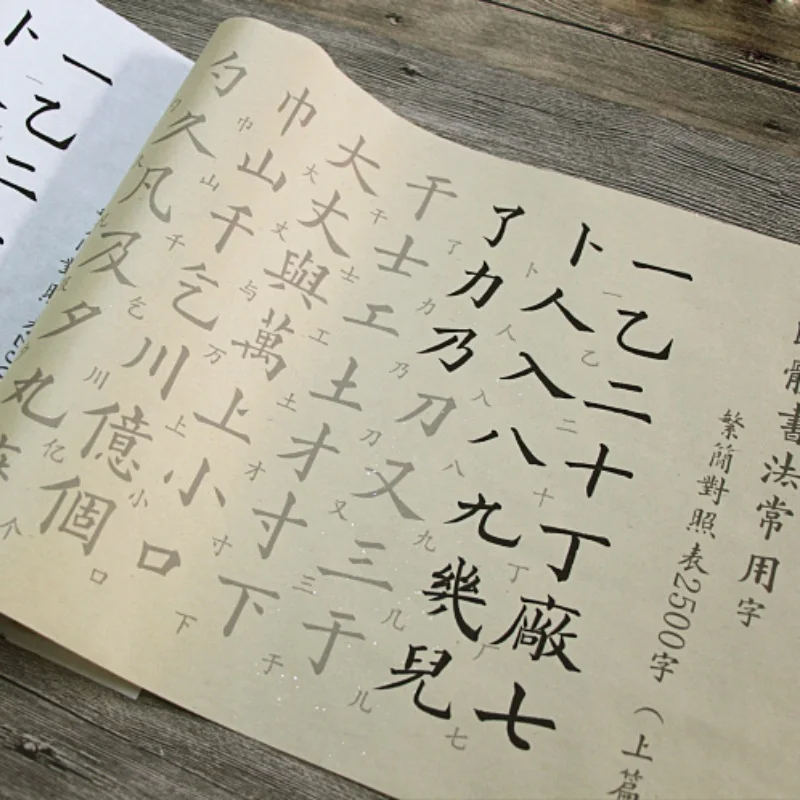 體書法常用字
繁簡對照表2500字（上篇
一乙二十丁廠七
一乙二十丁厂七
卜人入八九幾兒
卜人入八九几儿
了力乃刀又三于
了力乃刀又三于
干士工土才寸下
干士工土才寸下
大丈與萬上小口
大丈与万上小口
巾山千乞川億個
巾山千乞川亿个
勺久凡及夕丸
對照
一乙二
卜